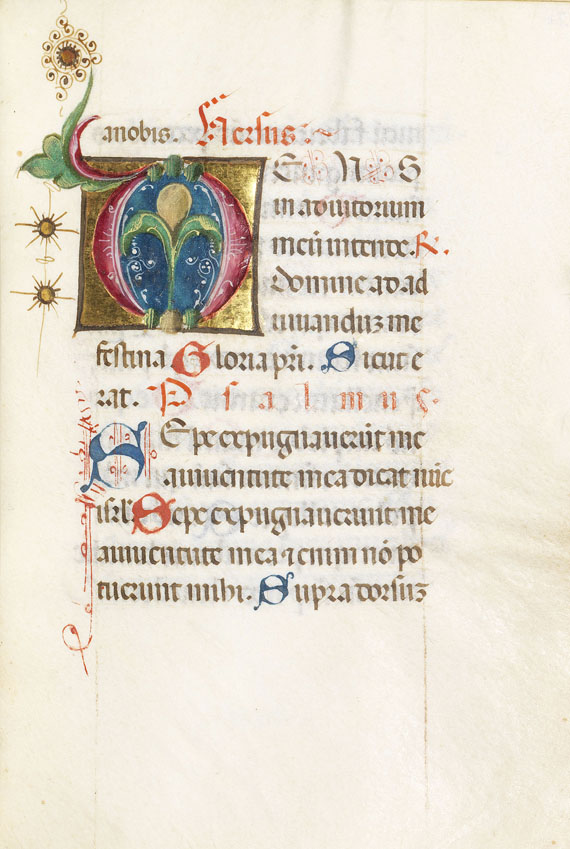 a nobis. Versus:~
DEUS
in adiutorium
meū intende. R.
Domine ad ad
iuuanduʒ me
festina Gloria pr̄i. Sicut e
rat. Psalmus.
Sepe expugnauerūt me
a iuuentute mea dicat nūc
isrl̄. Sepe expugnauerunt me
a iuuentute mea ⁊ enim nō po
tuerunt mihi. Supra dorsuʒ